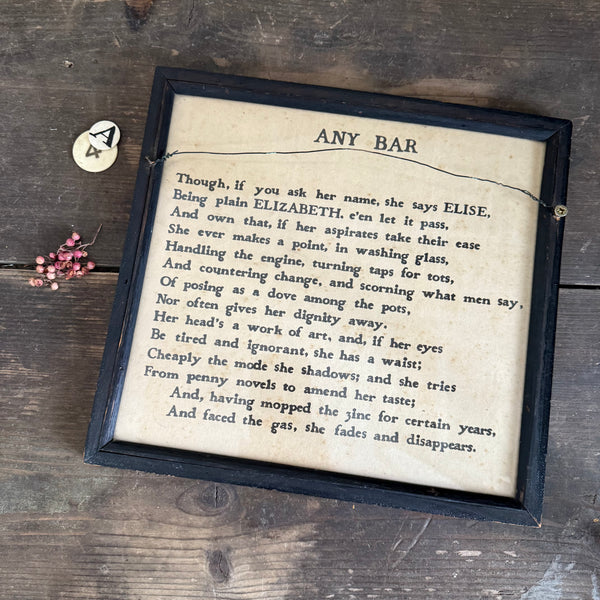 ANY BAR
Though, if you ask her name, she says ELISE,
Being plain ELIZABETH, e'en let it pass,
And own that, if her aspirates take their ease
She ever makes a point, in washing glass,
Handling the engine, turning taps for tots,
And countering change, and scorning what men say,
Of posing as a dove among the pots,
Nor often gives her dignity away.
Her head's a work of art, and, if her eyes
Be tired and ignorant, she has a waist;
Cheaply the mode she shadows; and she tries
From penny novels to amend her taste;
And, having mopped the zinc for certain years,
And faced the gas, she fades and disappears.
4